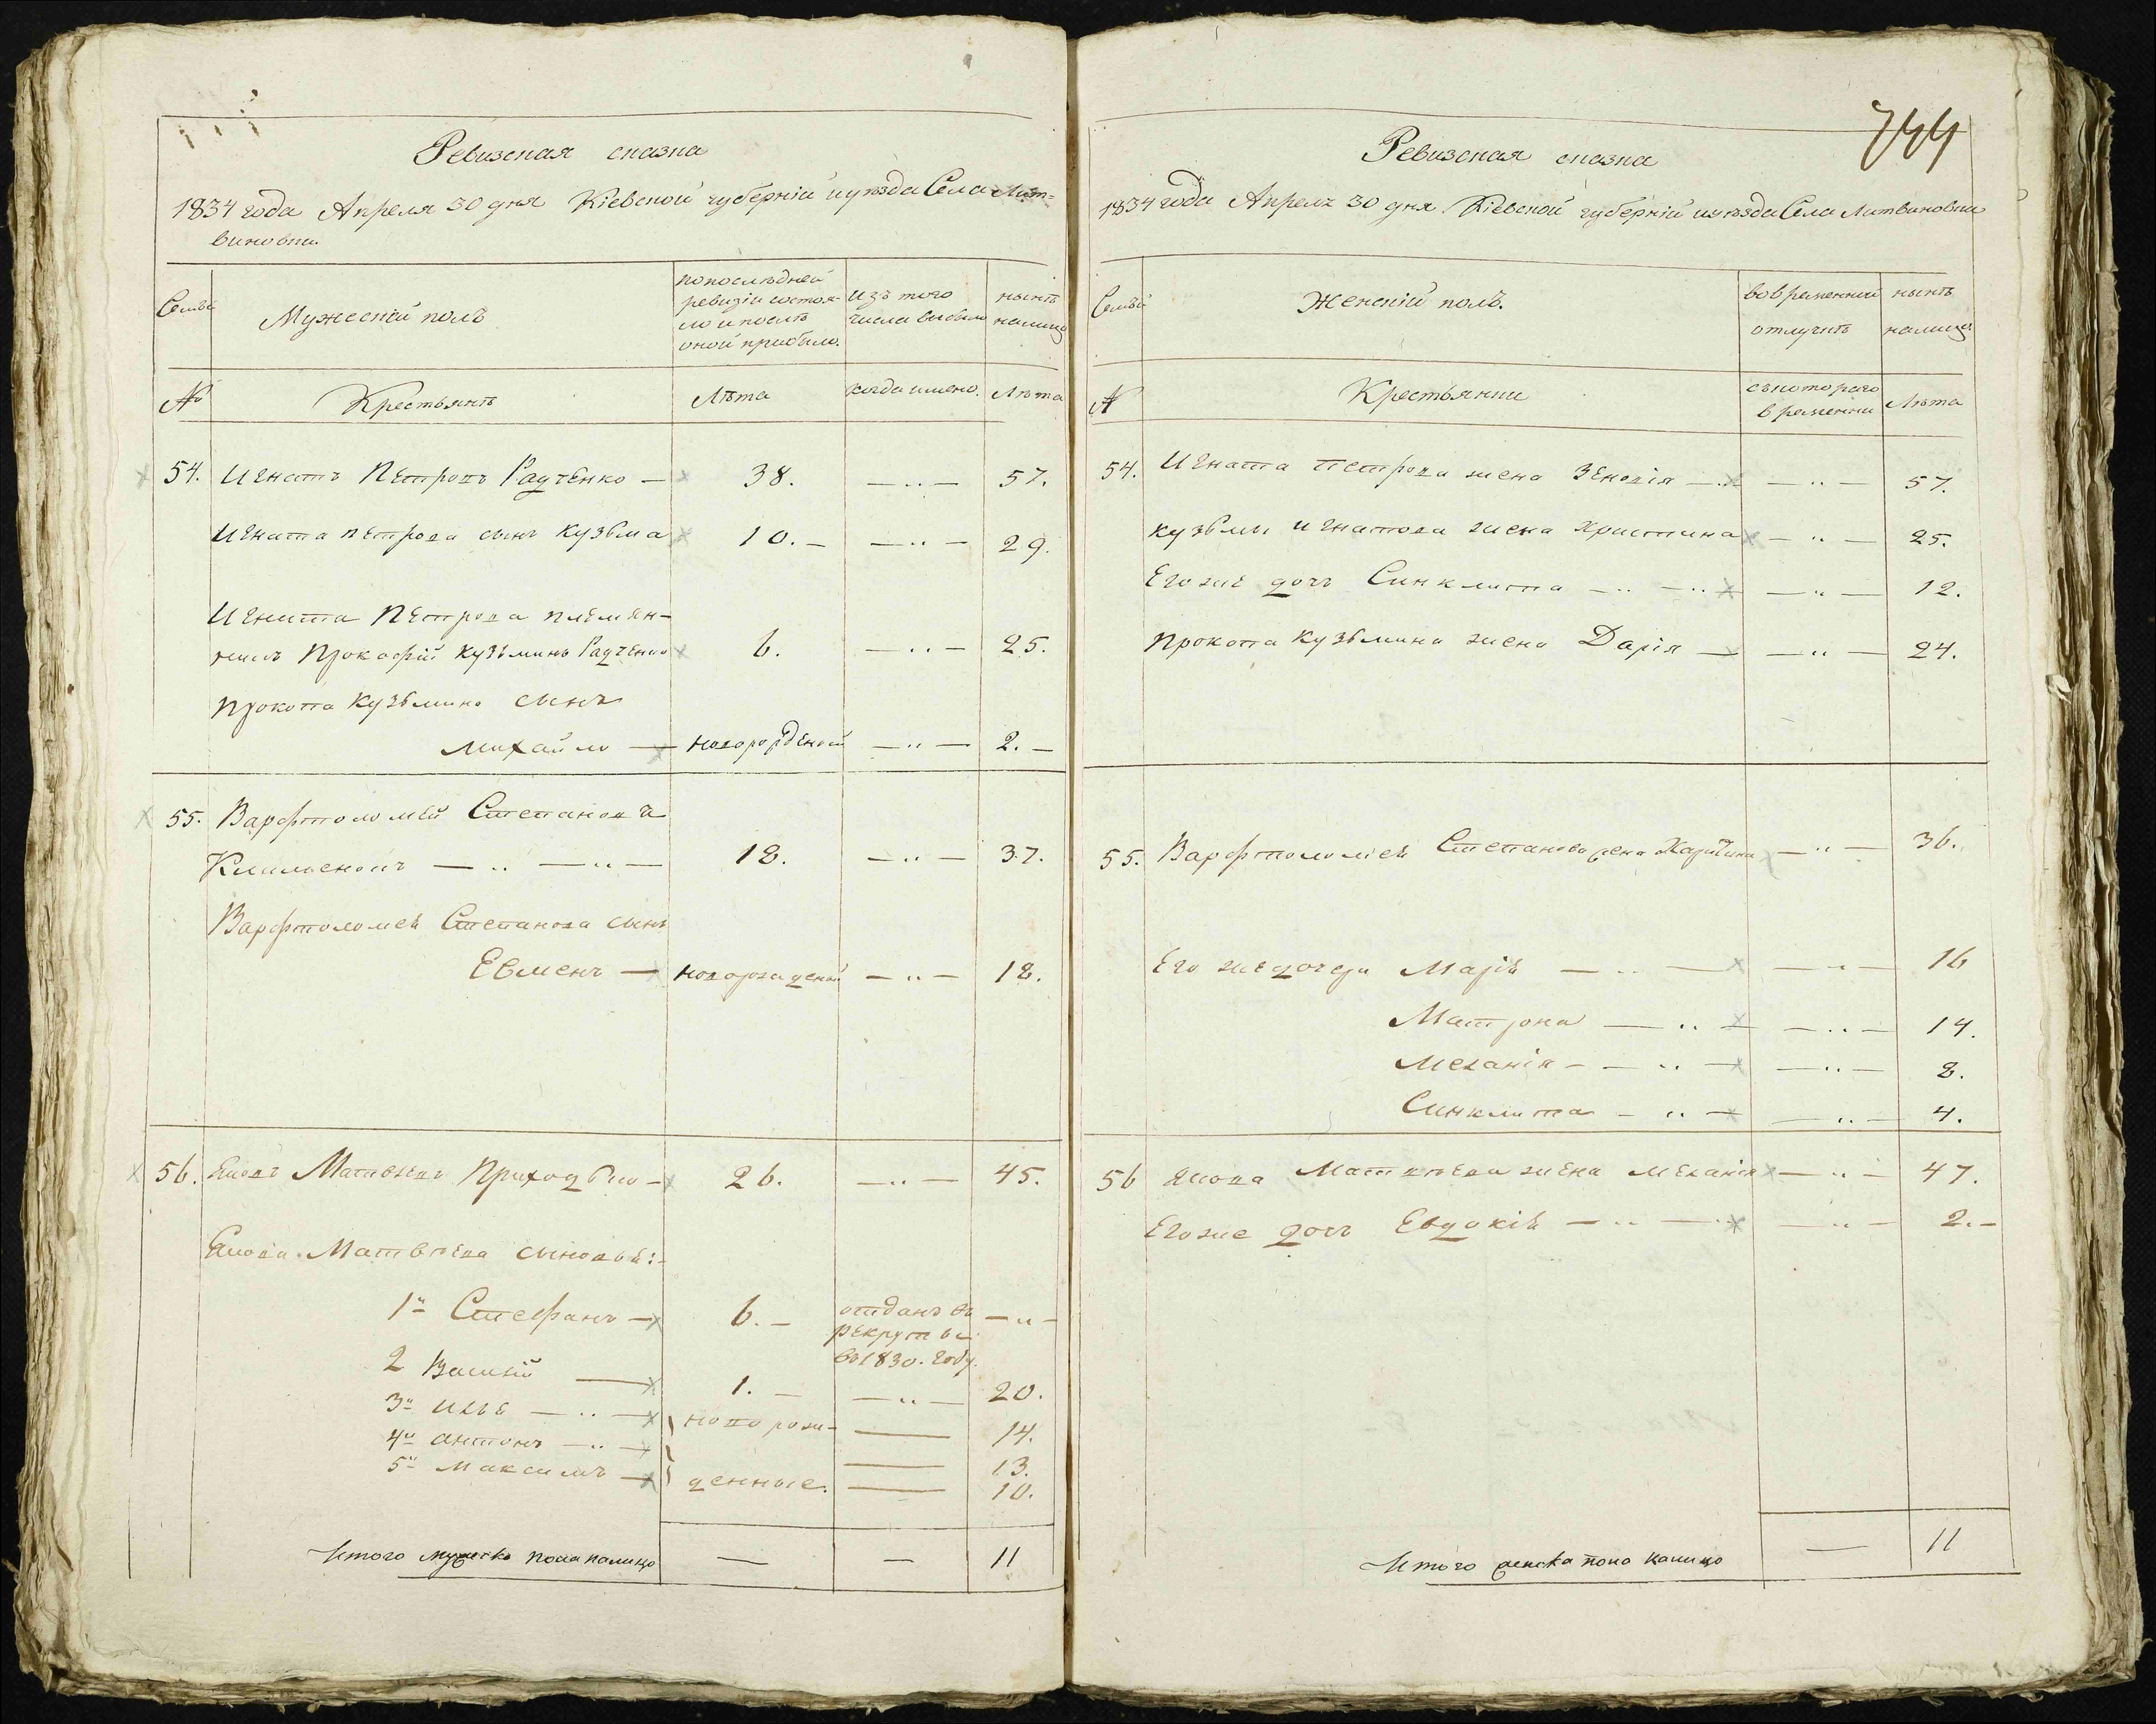 Ревизская сказка
1834 года Апреля 30 дня Кіевской губерніи и уѣзда Села Лит=
виновки.
Семьи
Мужескій полъ
по послѣдней
ревизіи состоя-
ло и послѣ
оной прибыло.
Изъ того
числа выбыло
нынѣ
налицо
№
Крестьянѣ
Лѣта
когда имено.
Лѣта
54. Игнатъ Петровъ Радченко — 38. — „ — 57.
Игната Петрова сынъ Кузьма 10. — — „ — 29.
Игната Петрова племян-
никъ Прокофій Кузьминъ Радченко 6. — „ — 25.
Прокопа Кузьмина сынъ
Михайло — новорожденой — „ — 2. —
55. Варфтоломей Степановъ
— „ — „ — 18. — „ — 37.
Варфтоломея Степанова сынъ
Евменъ — новорожденой — „ — 18.
56. Яковъ Матвѣевъ Приходько — 26. — „ — 45.
Якова Матвѣева сыновья:
1й Стефанъ — 6. — отданъ въ — „ —
рекруты
въ 1830. году.
2 Василій — 1. — — „ — 20.
3й Илья — „ — новорож- — 14.
4й Антонъ — „ — — 13.
5й Максимъ — денные. — 10.
Итого мужеска пола налицо — — 11
744
Ревизская сказка
1834 года Апреля 30 дня Кіевской губерніи и уѣзда Села Литвиновки
Семьи
Женскій полъ.
во временной
отлучкѣ
нынѣ
налицо
№
Крестьянки
съ котораго
времянни
Лѣта
54. Игната Петрова жена Зеновія — — „ — 57.
Кузьмы Игнатова жена Христина — „ — 25.
Его же дочь Синклита — „ — „ — — „ — 12.
Прокопа Кузьмина жена Дарія — — „ — 24.
55. Варфтоломея Степанова жена — „ — 36.
Его же дочери Марія — „ — — „ — 16
Матрона — „ — — „ — 14.
Меланія — — „ — — „ — 8.
Синклита — „ — — „ — 4.
56 Якова Матвѣева жена Меланія — „ — 47.
Его же дочь Евдокія — „ — „ — „ — 2. —
Итого женска пола налицо — 11